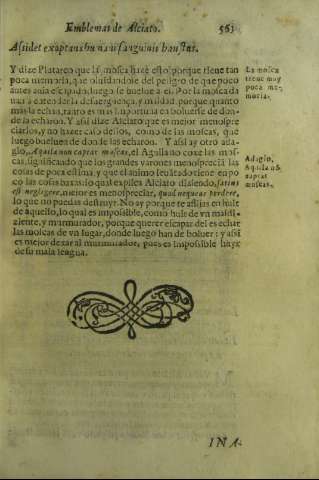 Emblemas de Alciato. 563
Assidet exoptansbunnau sanguinis haustus.
Y dize Plutarco que la mosca haze esto, porque tiene tan
poca memoria, que oluidandose del peligro de que poco
antes auia escapado, luego se buelue a el. Por la mosca da
uan a entender la desuerguença, y maldad, porque quanto
mas la echan, tanto es mas importuna en boluerse de don-
de la echaron. Y assi dize Alciato que es mejor menospre
ciarlos, y no hazer caso dellos, como de las moscas, que
luego bueluen de donde las echaron. Y assi ay otro ada-
gio, Aquila non captat muscas, el Aguila no coxe las mos-
cas, significando que los grandes varones menosprecia las
cosas de poca estima, y que el animo leuantado tiene en po
co las cosas baxas: lo qual explica Alciato diziendo, satius
est negligere, mejor es menospreciar, quod nequeas perdere,
lo que no puedas destruyr. No ay porque te aflijas en huir
de aquello, lo qual es impossible, como huir de vn maldi-
ziente, y murmurador, porque querer escapar del es echar
las moscas de vn lugar, donde luego han de boluer: y assi
es mejor dexar al murmurador, pues es impossible huyr
de su mala lengua.
La mosca
tiene muy
poca me-
moria.
Adagio,
Aquila nō
captat
muscas.
INA-